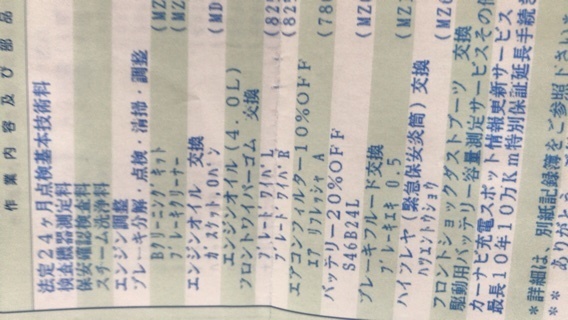 作業内容及び部品
法定24ヶ月点検基本技術料
検査機器測定料
保安確認検査料
スチーム洗浄料
エンジン調整
ブレーキ分解・点検・清掃・調整
Bクリーニングキット (MZ
ブレーキクリーナー (MZ
エンジンオイル 交換
ガスケット、Oパン (MD
エンジンオイル(4.0L)
フロントワイパーゴム 交換
ブレード ワイパ L (82
ブレード ワイパ R (82
エアコンフィルター10%OFF
エア リフレッシャ A (780
バッテリー20%OFF
S46B24L (MZ
ブレーキフルード交換
ブレーキエキ 0.5 (MZ
ハイフレヤ(緊急保安炎筒) 交換
ハツエントウショウ (MZ
フロントショックダストブーツ 交換
駆動用バッテリー容量測定サービスその他
カーナビ充電スポット情報更新サービス
最長10年10万Km特別保証延長手続き
*詳細は、別紙記録簿をご参照下さい*
** ありがとう